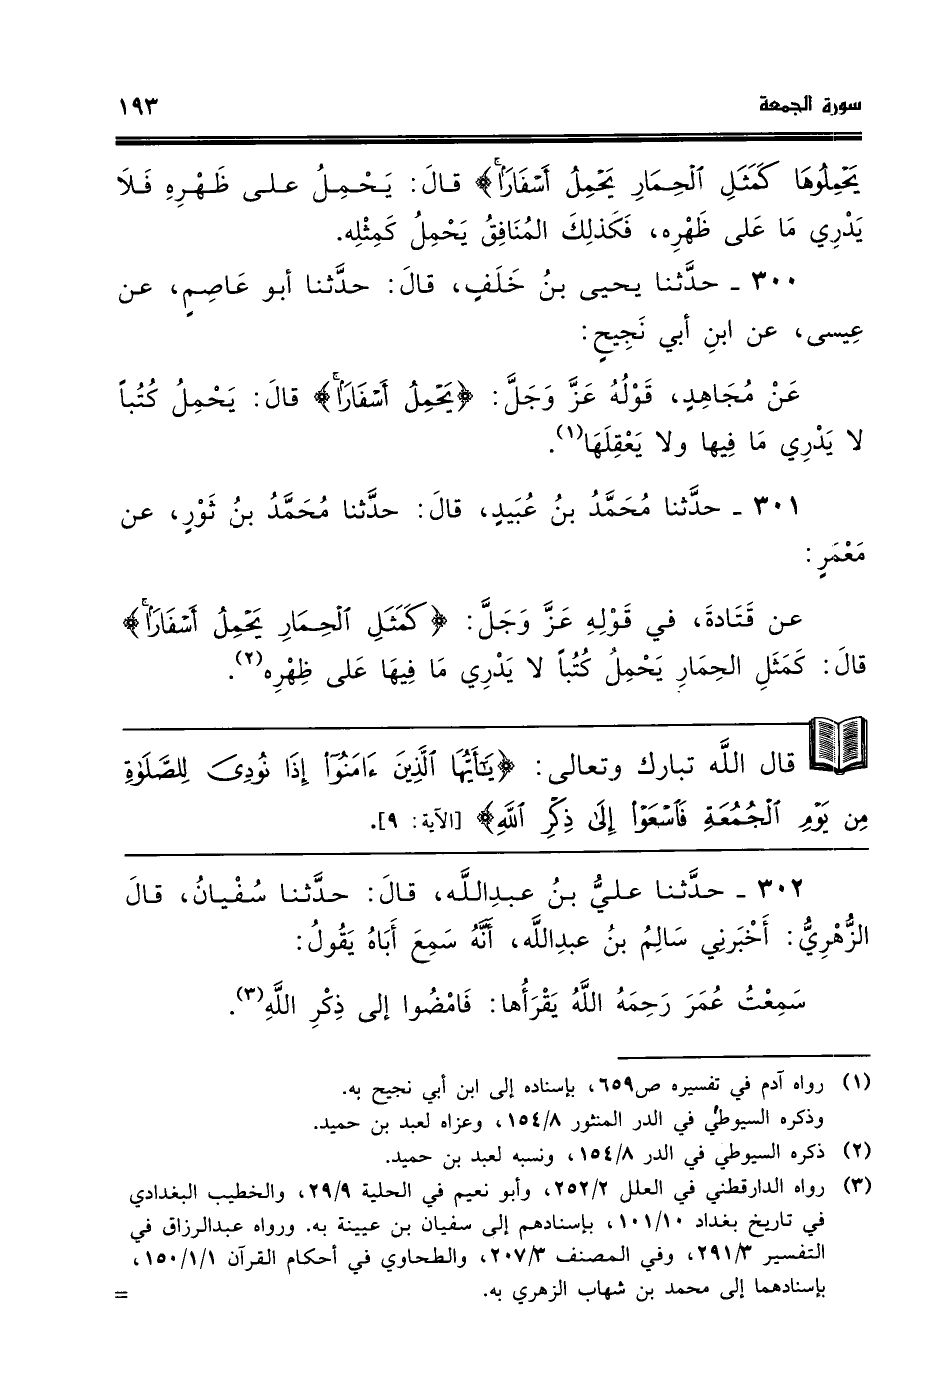 سورة الجمعة ١٩٣
يَحْمِلُوهَا كَمَثَلِ ٱلْحِمَارِ يَحْمِلُ أَسْفَارَۢاۚ﴾ قالَ: يَـحْمِلُ علـى ظَهْرِهِ فَلَا
يَدْرِي مَا عَلى ظَهْرِه، فَكَذلِكَ المُنَافِقُ يَحْمِلُ كَمِثْلِه.
٣٠٠ ـ حدَّثنا يحيى بنُ خَلَفٍ، قالَ: حدَّثنا أبو عَاصِمٍ، عن
عِيسى، عن ابنِ أبي نَجِيحٍ:
عَنْ مُجَاهِدٍ، قَوْلُهُ عَزَّ وَجَلَّ: ﴿يَحْمِلُ أَسْفَارَۢاۚ﴾ قالَ: يَحْمِلُ كُتُباً
لا يَدْرِي مَا فِيها ولا يَعْقِلَهَا(١).
٣٠١ ـ حدَّثنا مُحَمَّدُ بنُ عُبَيدٍ، قالَ: حدَّثنا مُحَمَّدُ بنُ ثَوْرٍ، عن
مَعْمَرٍ:
عـن قَتَادةَ، في قَوْلِهِ عَزَّ وَجَلَّ: ﴿كَمَثَلِ ٱلْحِمَارِ يَحْمِلُ أَسْفَارَۢاۚ﴾
قالَ: كَمَثَلِ الحِمَارِ يَحْمِلُ كُتُباً لا يَدْرِي مَا فِيهَا عَلى ظِهْرِه(٢).
قال اللَّه تبارك وتعالى: ﴿يَٰٓأَيُّهَا ٱلَّذِينَ ءَامَنُوٓا۟ إِذَا نُودِىَ لِلصَّلَوٰةِ
مِن يَوْمِ ٱلْجُمُعَةِ فَٱسْعَوْا۟ إِلَىٰ ذِكْرِ ٱللَّهِ﴾ [الآية: ٩].
٣٠٢ ـ حدَّثنا عليُّ بنُ عبدِاللَّه، قالَ: حدَّثنا سُفْيانُ، قالَ
الزُّهْرِيُّ: أَخْبَرنِي سَالِمُ بنُ عبدِاللَّه، أَنَّهُ سَمِعَ أَبَاهُ يَقُولُ:
سَمِعْتُ عُمَرَ رَحِمَهُ اللَّهُ يَقْرَأُها: فَامْضُوا إلى ذِكْرِ اللَّهِ(٣).
(١) رواه آدم في تفسيره ص٦٥٩، بإسناده إلى ابن أبي نجيح به.
وذكره السيوطيُّ في الدر المنثور ١٥٤/٨، وعزاه لعبد بن حميد.
(٢) ذكره السيوطي في الدر ١٥٤/٨، ونسبه لعبد بن حميد.
(٣) رواه الدارقطني في العلل ٢٥٢/٢، وأبو نعيم في الحلية ٢٩/٩، والخطيب البغدادي
في تاريخ بغداد ١٠١/١٠، بإسنادهم إلى سفيان بن عيينة به. ورواه عبدالرزاق في
التفسير ٢٩١/٣، وفي المصنف ٢٠٧/٣، والطحاوي في أحكام القرآن ١٥٠/١/١،
بإسنادهما إلى محمد بن شهاب الزهري به. =